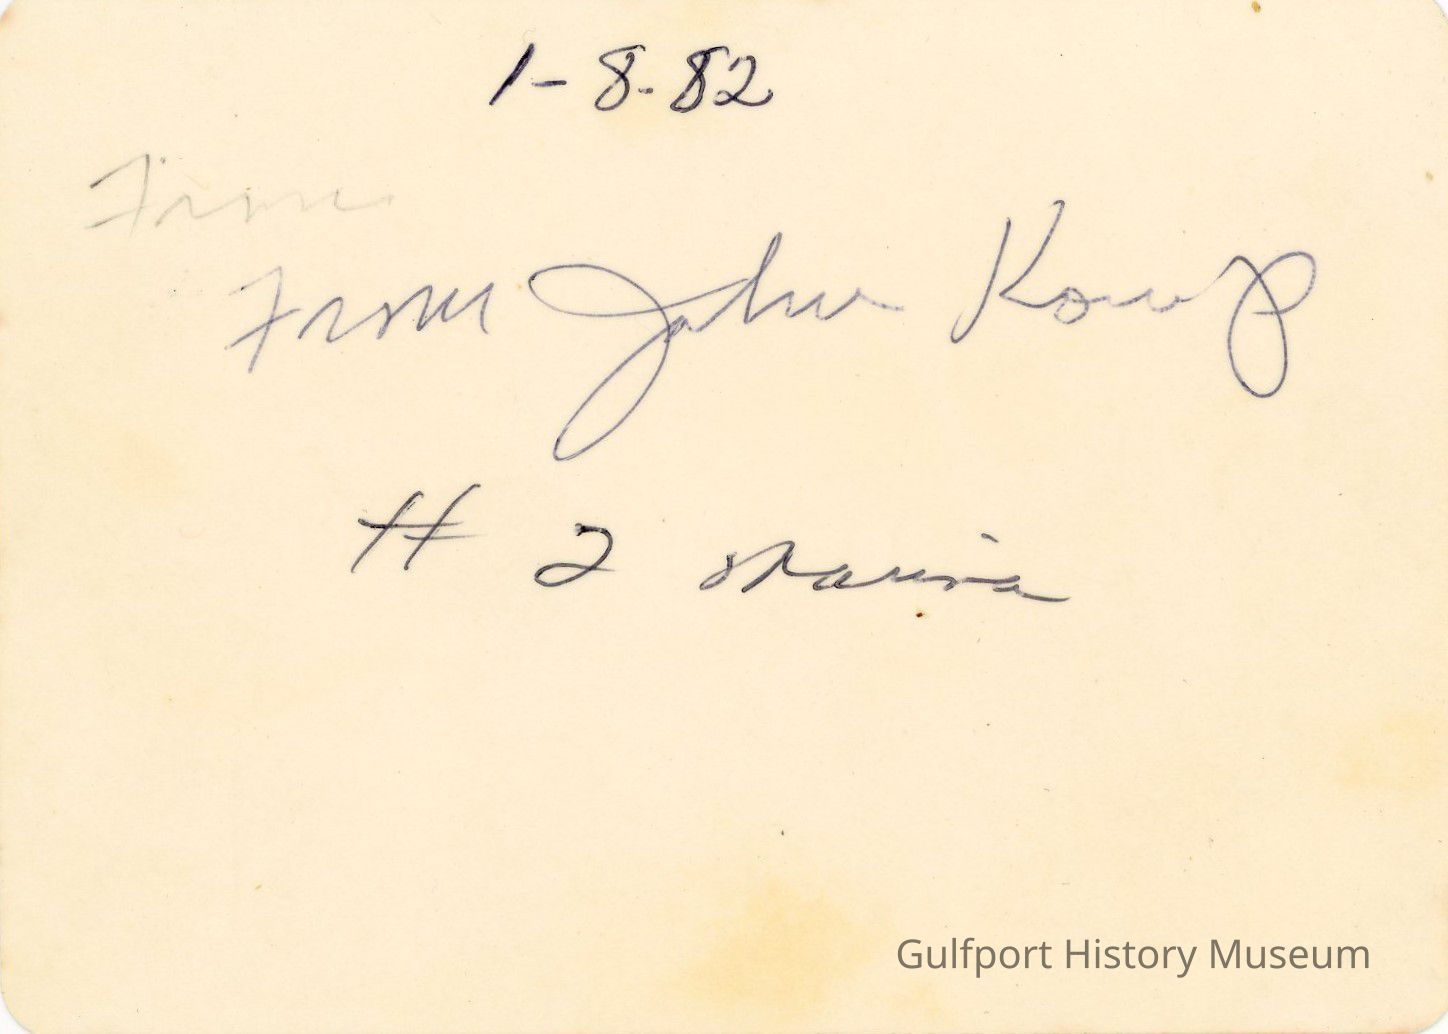 1-8-82
From
From John
# 2
Gulfport History Museum